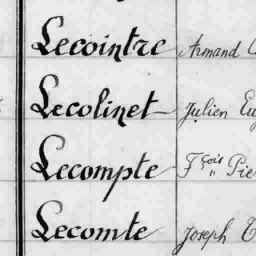 Lecointre Armand
Lecolinet Julien
Lecompte Fçois Pie
Lecomte Joseph